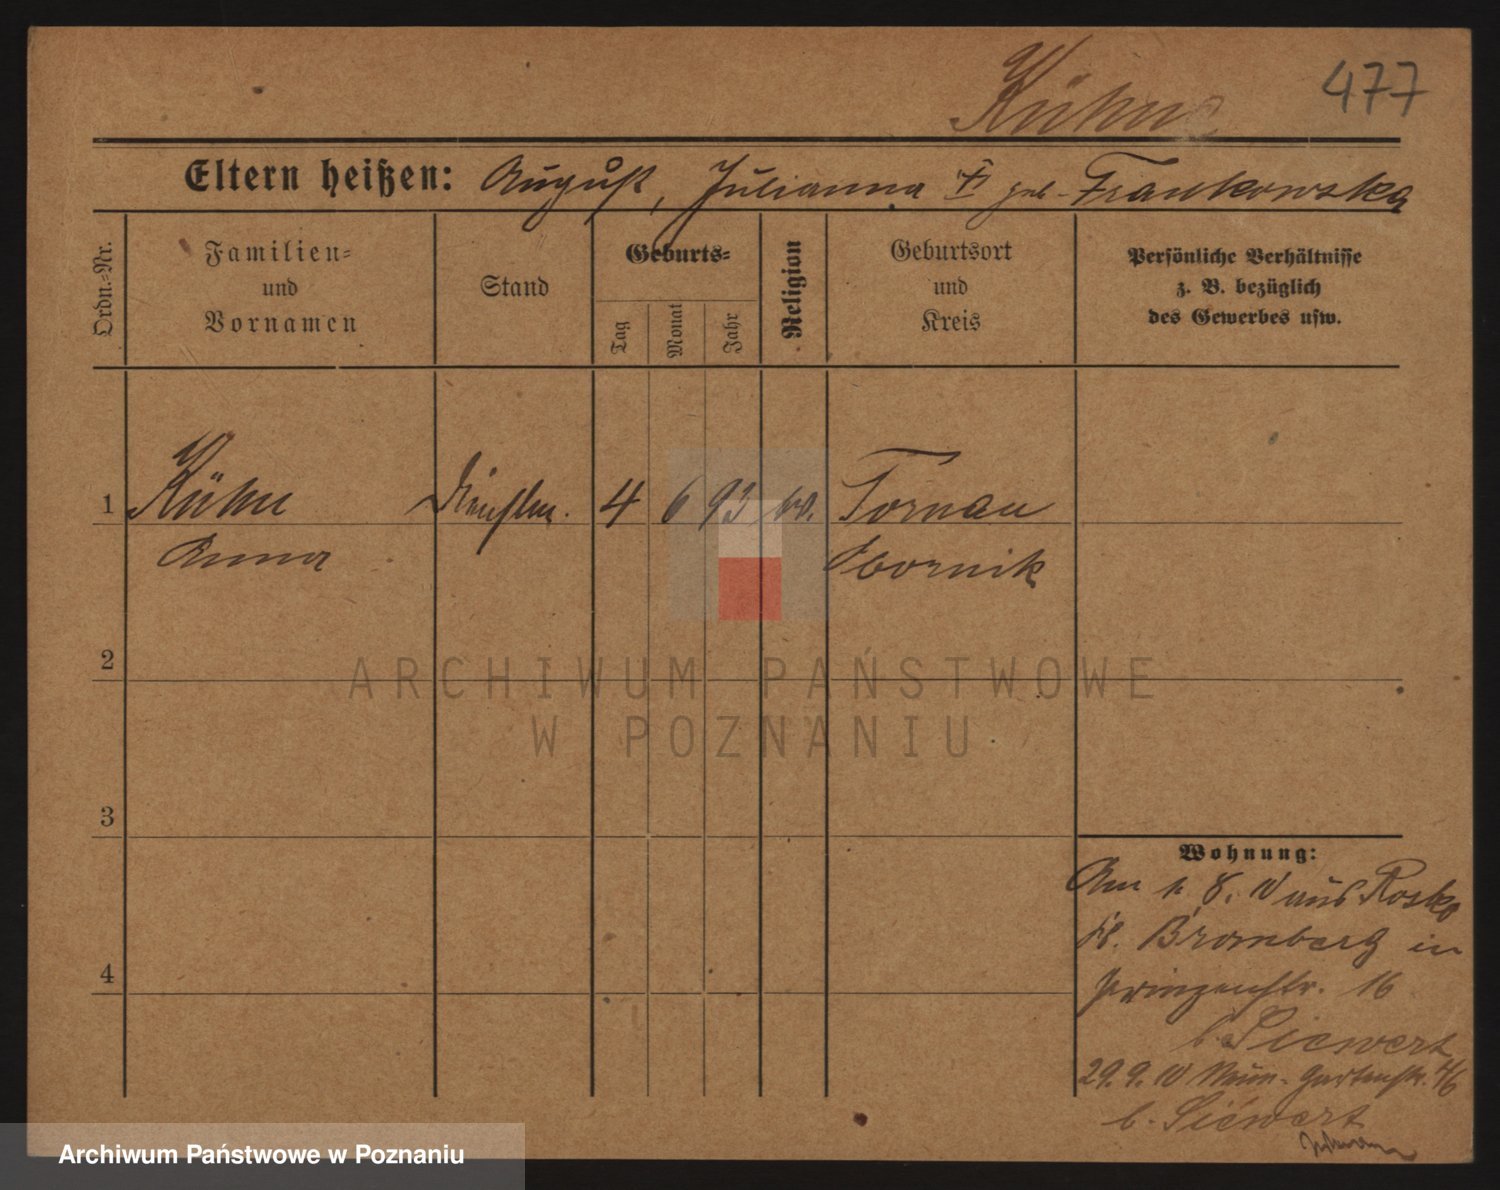 477
Kühn
Eltern heißen: August, Julianna geb. Frankowska
Ordn.-Nr.
Familien-
und
Vornamen
Stand
Geburts-
Tag
Monat
Jahr
Religion
Geburtsort
und
Kreis
Persönliche Verhältnisse
z. B. bezüglich
des Gewerbes usw.
1 Kühn Dienstm. 4 6 93 Tornau
Anna Obornik
2
3
4
Wohnung:
Am 1. 8. 10 aus Rosko
Bromberg in
Prinzenstr. 16
b. Siewert
29. 9. 10 Gartenstr.
b. Siewert
ARCHIWUM PAŃSTWOWE
W POZNANIU
Archiwum Państwowe w Poznaniu